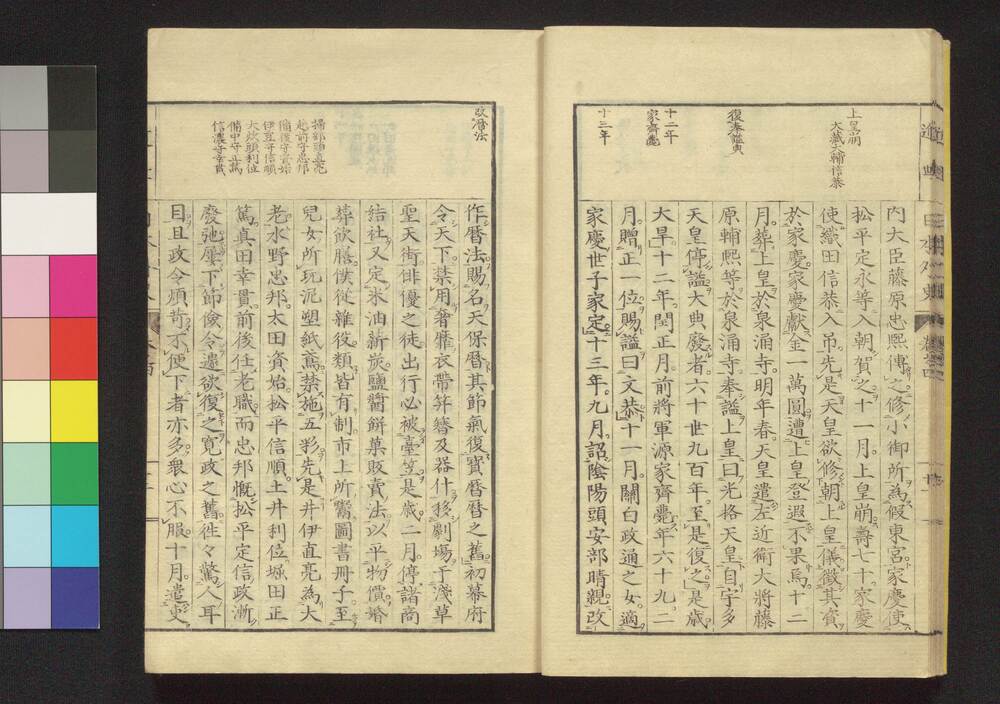 上皇崩
大藏大輔信恭
復奉謚典
十二年
家齊薨
十三年
内大臣藤原忠熙傅之修小御所爲假東宮家慶使
松平定永等入朝賀之十一月上皇崩壽七十家慶
使織田信恭入吊先是天皇欲修朝上皇儀徴其資
於家慶家慶獻金一萬圓遭上皇登遐不果焉十二
月葬上皇於泉涌寺明年春天皇遣左近衛大將藤
原輔熙等於泉涌寺奉謚上皇曰光格天皇自宇多
天皇停謚大典廢者六十世九百年至是復之是歳
大旱十二年閏正月前將軍源家齊薨年六十九二
月贈正一位賜謚曰文恭十一月關白政通之女適
家慶世子家定十三年九月詔陰陽頭安部晴親改
改暦法
掃部頭直亮
越前守忠邦
備後守資始
伊豆守信順
大炊頭利位
備中守正篤
信濃守幸貫
作暦法賜名天保暦其節氣復寶暦暦之舊初幕府
令天下禁用奢靡衣帶笄簪及器什移劇場于淺草
聖天街俳優之徒出行必被臺笠是歳二月停諸商
結社又定米油薪炭鹽醬餅菓販賣法以平物價婚
葬飲膳僕從雜役類皆有制市上所鬻圖書冊子至
兒女所玩泥塑紙鳶禁施五彩先是井伊直亮為大
老水野忠邦太田資始松平信順土井利位堀田正
篤真田幸貫前後任老職而忠邦慨松平定信政漸
廢弛屢下節儉令遽欲復之寛政之舊徃々驚人耳
目且政令煩苛不便下者亦多衆心不服十月遣吏